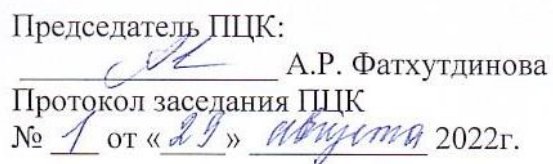 Председатель ПЦК:
А.Р. Фатхутдинова
Протокол заседания ПЦК
№ 1 от «29» августа 2022г.